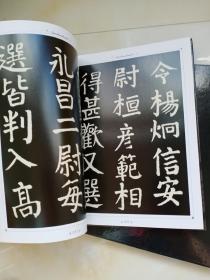 令楊炯信安
尉桓彦範相
得甚歡又選
永昌二尉每
選皆判入高